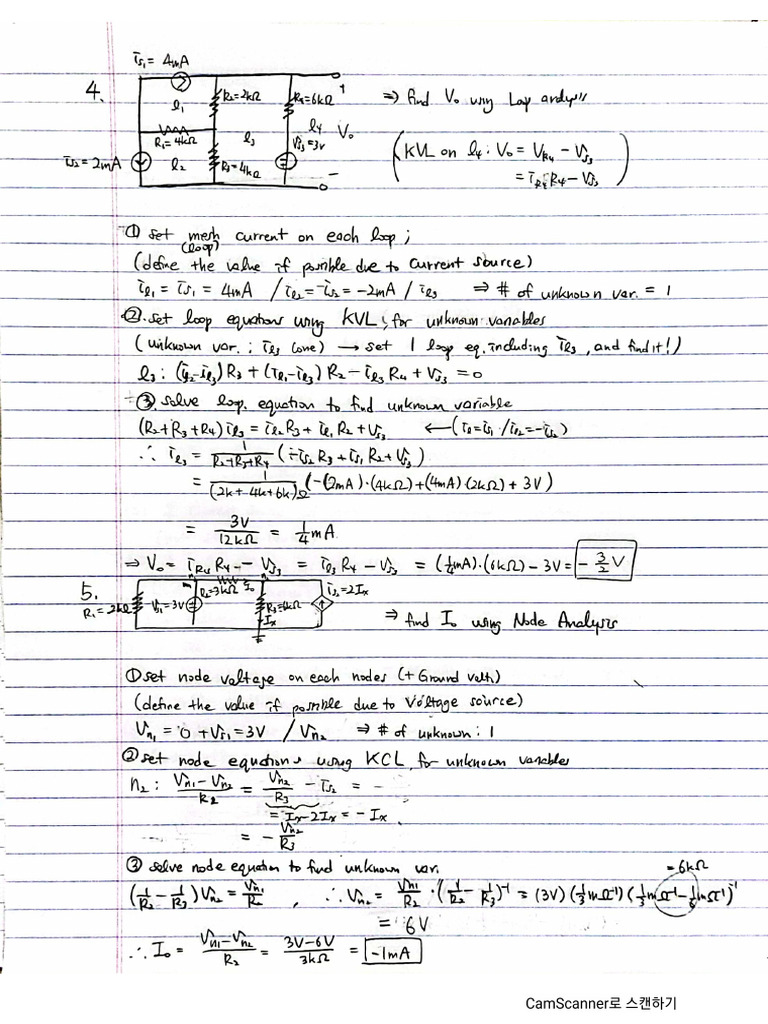 4.
is1 = 4mA
R2=2kΩ
R4=6kΩ
l1
R1=4kΩ
l3
l4
+
Vo
-
Vs3=3V
is2=2mA
l2
R3=4kΩ
⇒ find Vo using Loop analysis
(KVL on l4 : Vo = VR4 - Vs3
= iR4 R4 - Vs3)
① set mesh current on each loop ;
(loop)
(define the value if possible due to current source)
il1 = is1 = 4mA / il2 = -is2 = -2mA / il3 ⇒ # of unknown var. = 1
②. set loop equations using KVL, for unknown variables
(unknown var. ; il3 (one) → set 1 loop eq. including il3, and find it!)
l3 : (il2-il3)R3 + (il1-il3)R2 - il3 R4 + Vs3 = 0
③ solve loop equation to find unknown variable
(R2+R3+R4) il3 = il2 R3 + il1 R2 + Vs3 ← (il1=is1 / il2=-is2)
∴ il3 = 1/(R2+R3+R4) (-is2 R3 + is1 R2 + Vs3)
= 1/((2k+4k+6k)Ω) (-(2mA)·(4kΩ)+(4mA)(2kΩ)+3V)
= 3V/12kΩ = 1/4 mA
⇒ Vo = iR4 R4 - Vs3 = il3 R4 - Vs3 = (1/4mA)·(6kΩ) - 3V = -3/2 V
5.
R1=2kΩ
Vs1=3V
R2=3kΩ
Io
R3=6kΩ
Ix
is2=2Ix
⇒ find Io using Node Analysis
① set node voltage on each nodes (+ Ground volt.)
(define the value if possible due to voltage source)
Vn1 = 0 + Vs1 = 3V / Vn2 ⇒ # of unknown : 1
② set node equations using KCL, for unknown variables
n2 : (Vn1-Vn2)/R2 = Vn2/R3 - is2 = -
= Ix-2Ix = -Ix
= -Vn2/R3
③ solve node equation to find unknown var.
= 6kΩ
(1/R2 - 1/R3)Vn2 = Vn1/R2 , ∴ Vn2 = Vn1/R2 · (1/R2 - 1/R3)⁻¹ = (3V)(1/3 mΩ⁻¹)(1/3 mΩ⁻¹ - 1/6 mΩ⁻¹)⁻¹
= 6V
∴ Io = (Vn1-Vn2)/R2 = (3V-6V)/3kΩ = -1mA
CamScanner로 스캔하기